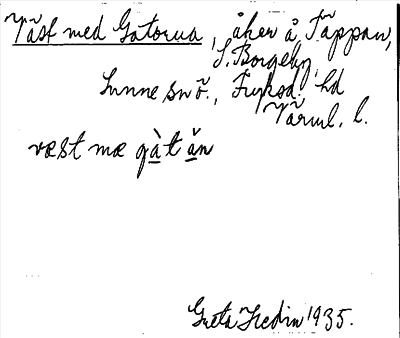 Väst med Gatorna, åker å Täppan,
S. Borgeby,
Sunne snö., Fryksd. hd
Värml. l.
væst mæ gàt ăn
Greta Hedin 1935.